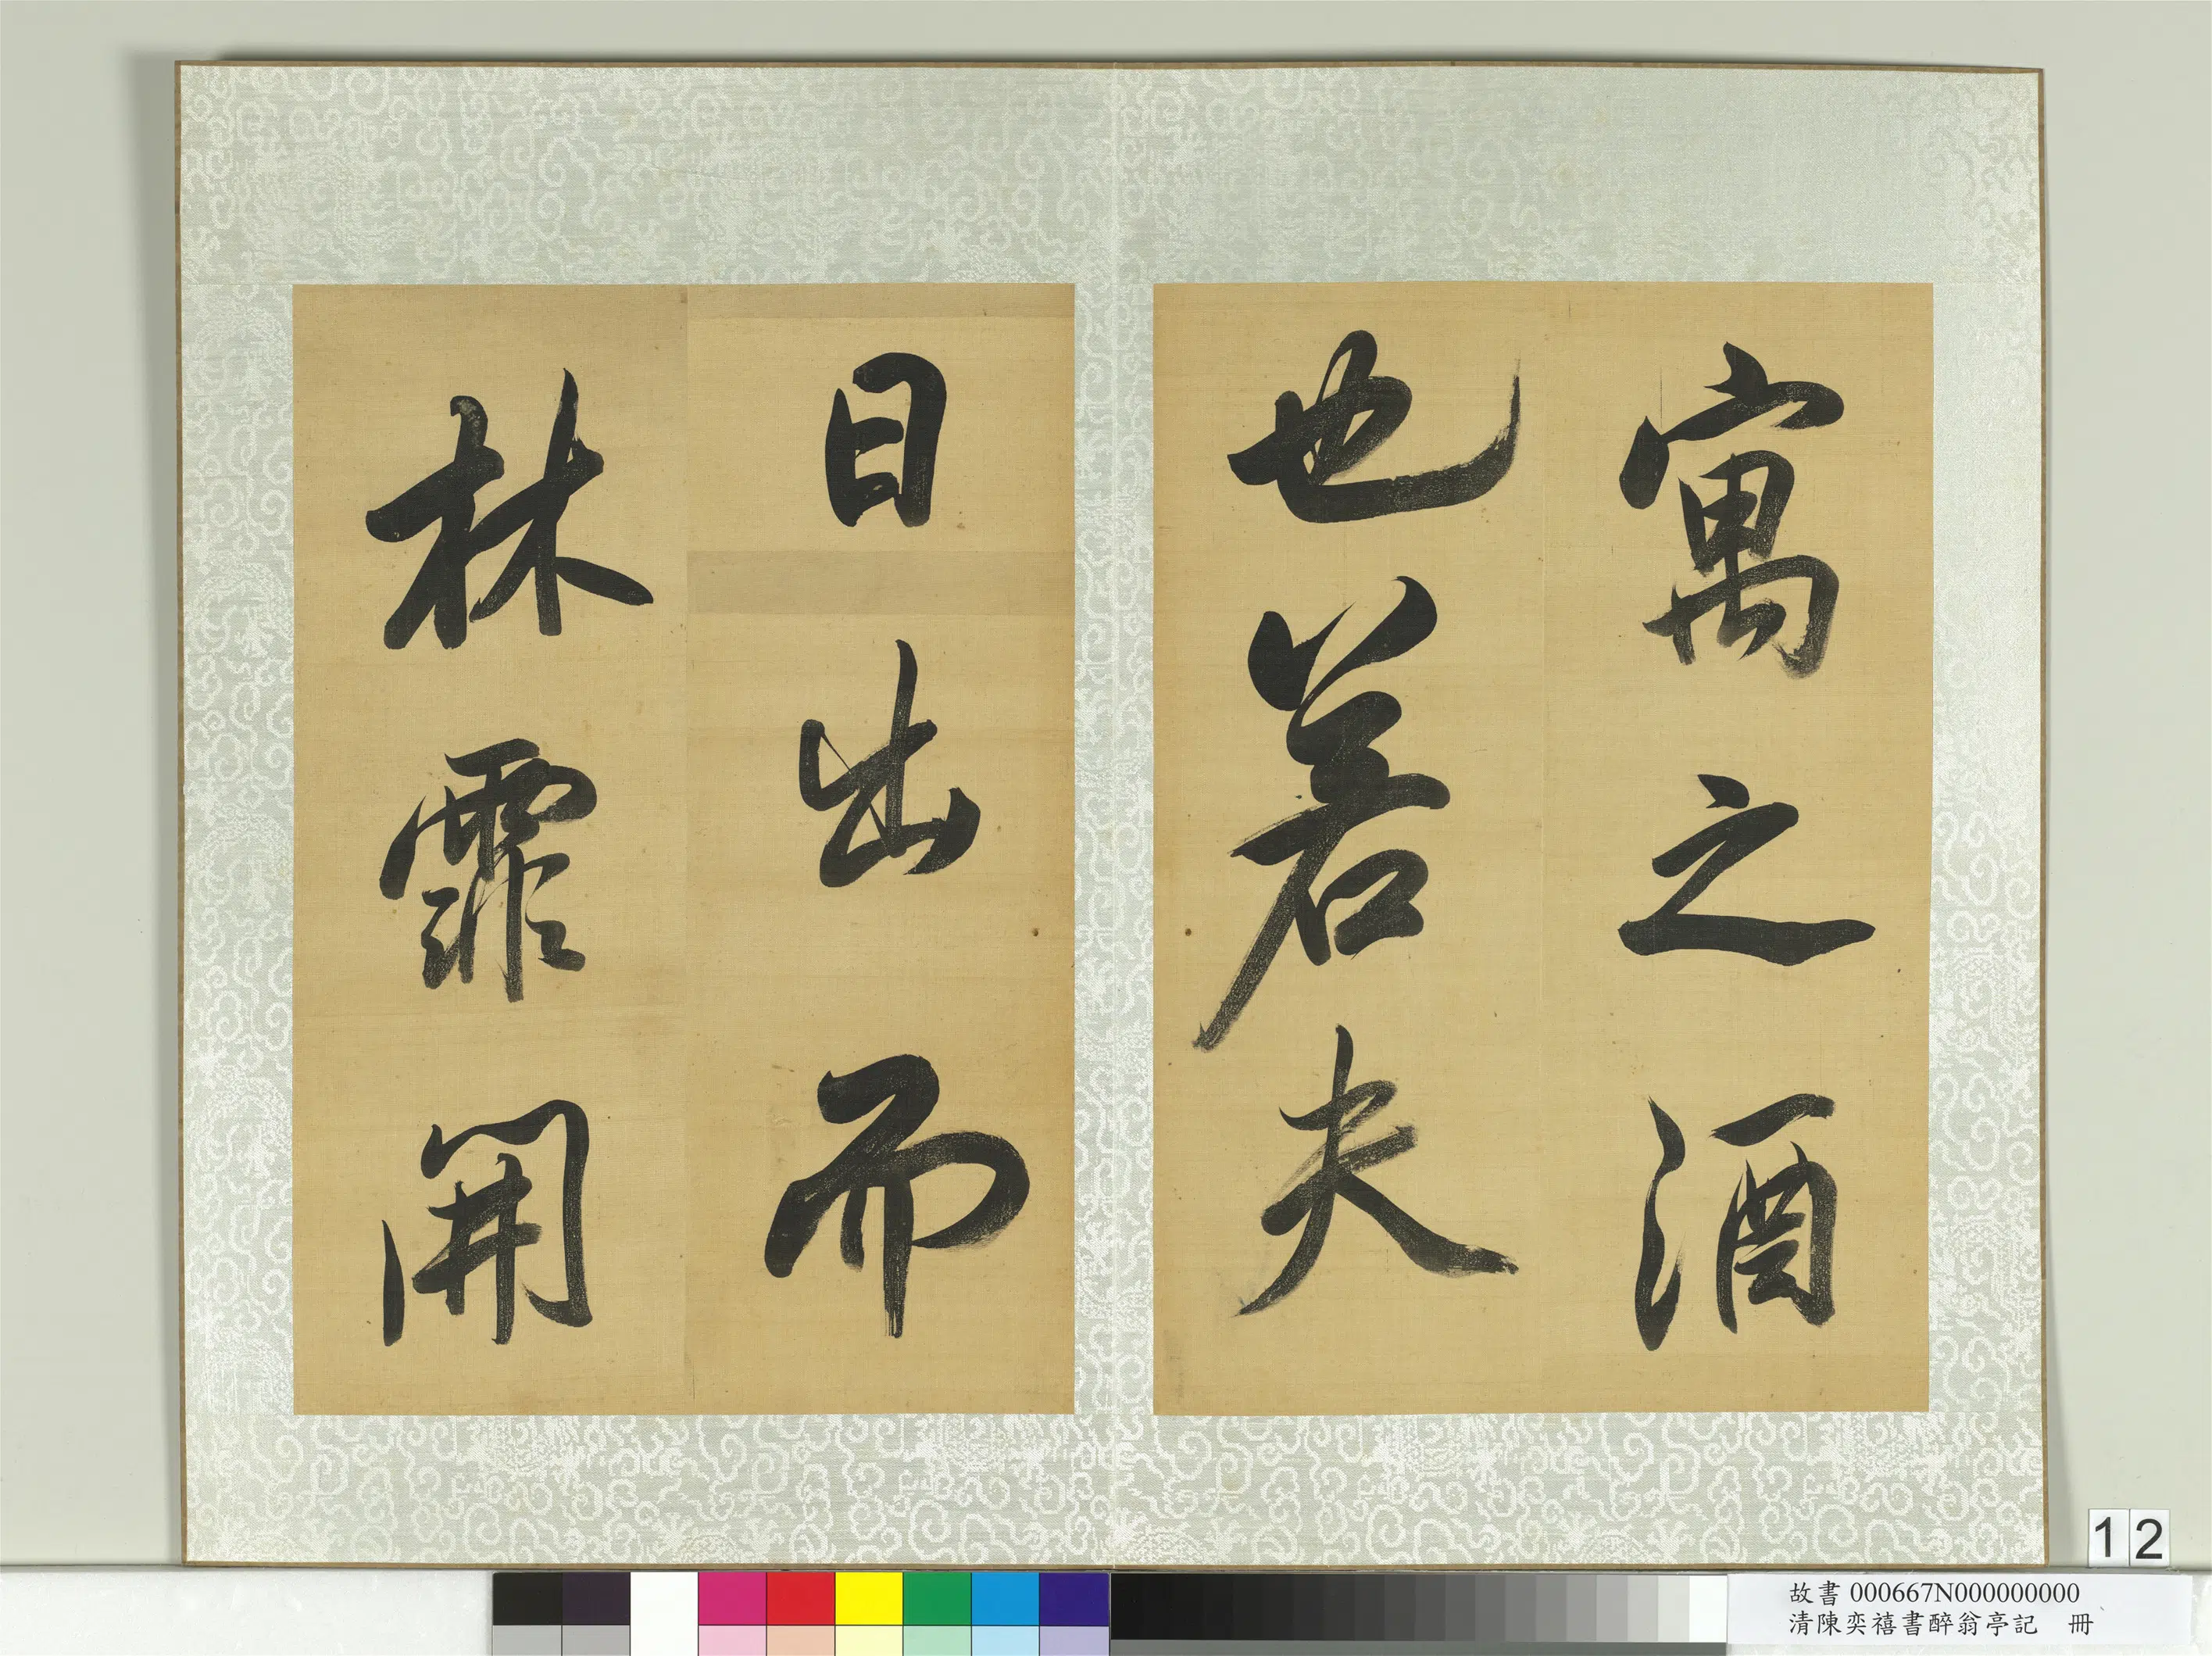 寓之酒
也若夫
日出而
林霏開
12
故書 000667N000000000
清陳奕禧書醉翁亭記 冊